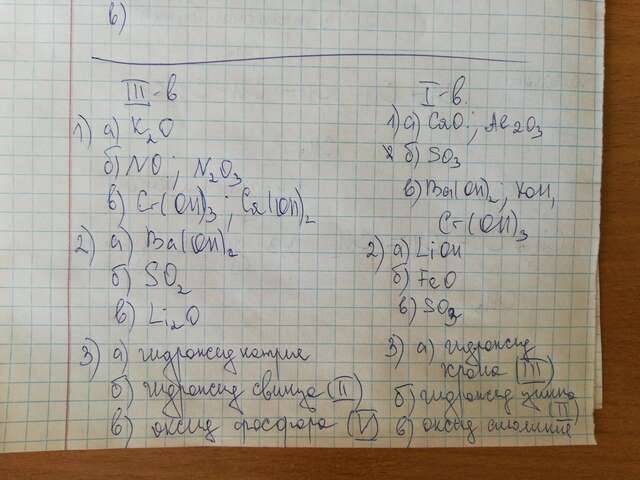 в)
III-в
1) а) K2O
б) NO; N2O3
в) Cr(OH)3; Ca(OH)2
2) а) Ba(OH)2
б) SO2
в) Li2O
3) а) гидроксид натрия
б) гидроксид свинца (II)
в) оксид фосфора (V)
I-в.
1) а) CaO; Al2O3
б) SO3
в) Ba(OH)2; KOH,
Cr(OH)3
2) а) LiOH
б) FeO
в) SO3
3) а) гидроксид
хрома (III)
б) гидроксид цинка
(II)
в) оксид